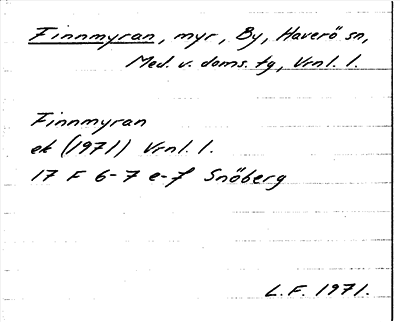 Finnmyran, myr, By, Haverö sn,
Med. v. doms. tg, Vrnl. l.
Finnmyran
ek (1971) Vrnl. l.
17 F 6-7 e-f Snöberg
L.F. 1971.